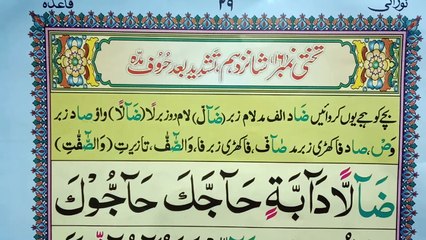 نورانی ۲۹ قاعدہ
تختی نمبر ۱۶ شانزدہم، تشدید بعد حروف مدّہ
بچے کو ہجے یوں کروائیں ضاد الف مد لام زبر (ضَآلّ) لام دو زبر لًا (ضَآلًّا) واؤ صاد زبر
وَصْ، صاد فا کھڑی زبر مد صٰٓفّ، فا کھڑی زبر فٰ، وَالصّٰٓفّٰ، تا زیر تِ (وَالصّٰٓفّٰتِ)
ضَآلًّا دَآبَّةٍ حَآجَّكَ حَآجُّوْكَ